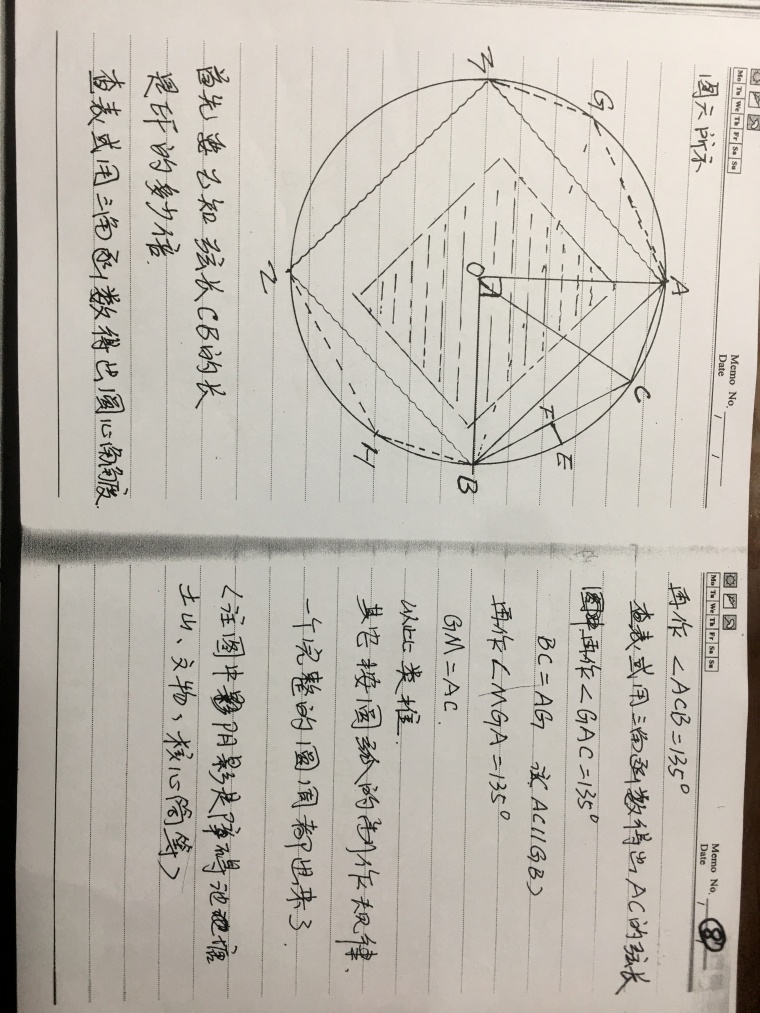 Mo Tu We Th Fr Sa Su
Memo No.
Date / /
图六所示
A
G
M
C
O
F
E
B
H
Z
首先要已知弦长CB的长
是EF的多少倍.
查表或用三角函数得出圆心角角度.
Mo Tu We Th Fr Sa Su
Memo No.
Date /
8
再作<ACB=135°
查表或用三角函数得出AC的弦长
再作<GAC=135°
BC=AG 或(AC//GB)
再作<MGA=135°
GM=AC.
以此类推.
其它按圆弧的制作规律、
一个完整的圆周都出来了.
(注图中阴影是障碍池包括
土山、文物、核心筒等)